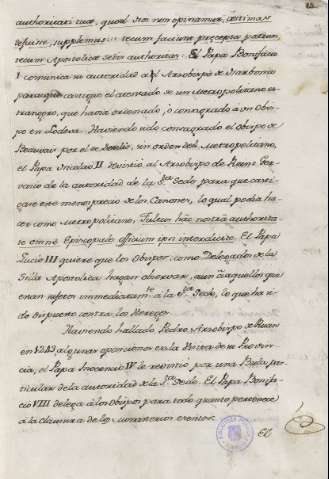 authoritati suæ, quod sic non opinamur, æstimas
defuisse, supplemus
tecum Apostolicæ Sedis authoritas. El Papa Bonifacio
I comunica su autoridad al Arzobispo de Narbona
para que castigue el atentado de un Metropolitano
extrangero, que havia ordenado, ó consagrado á un Obis-
po en Lodeva. Haviendo sido consagrado el Obispo de
Beauvais por el de Senlis, sin orden del Metropolitano,
el Papa Urbano II revistió al Arzobispo de Reims
de la autoridad de la Sta Sede para que casti-
gase este menosprecio de los Canones, lo qual podia ha-
cer como Metropolitano;
te omne Episcopale officium ipsi interdicito. El Papa
Lucio III quiere que los Obispos como Delegados de la
Silla Apostolica hagan observar, aun á aquellos que
esten sujetos inmediatamte á la Sta Sede, lo que ha si-
do dispuesto contra los Hereges.
Haviendo hallado Pedro Arzobispo de Ruan
en algunas oposiciones en la Visita de su Provin-
cia, el Papa Inocencio IV le revistió por una Bula par-
ticular de la autoridad de la Sta Sede. El Papa Bonifa-
cio VIII delega á los Obispos para todo quanto pertenece
á la clausura de los Monasterios esentos.
El